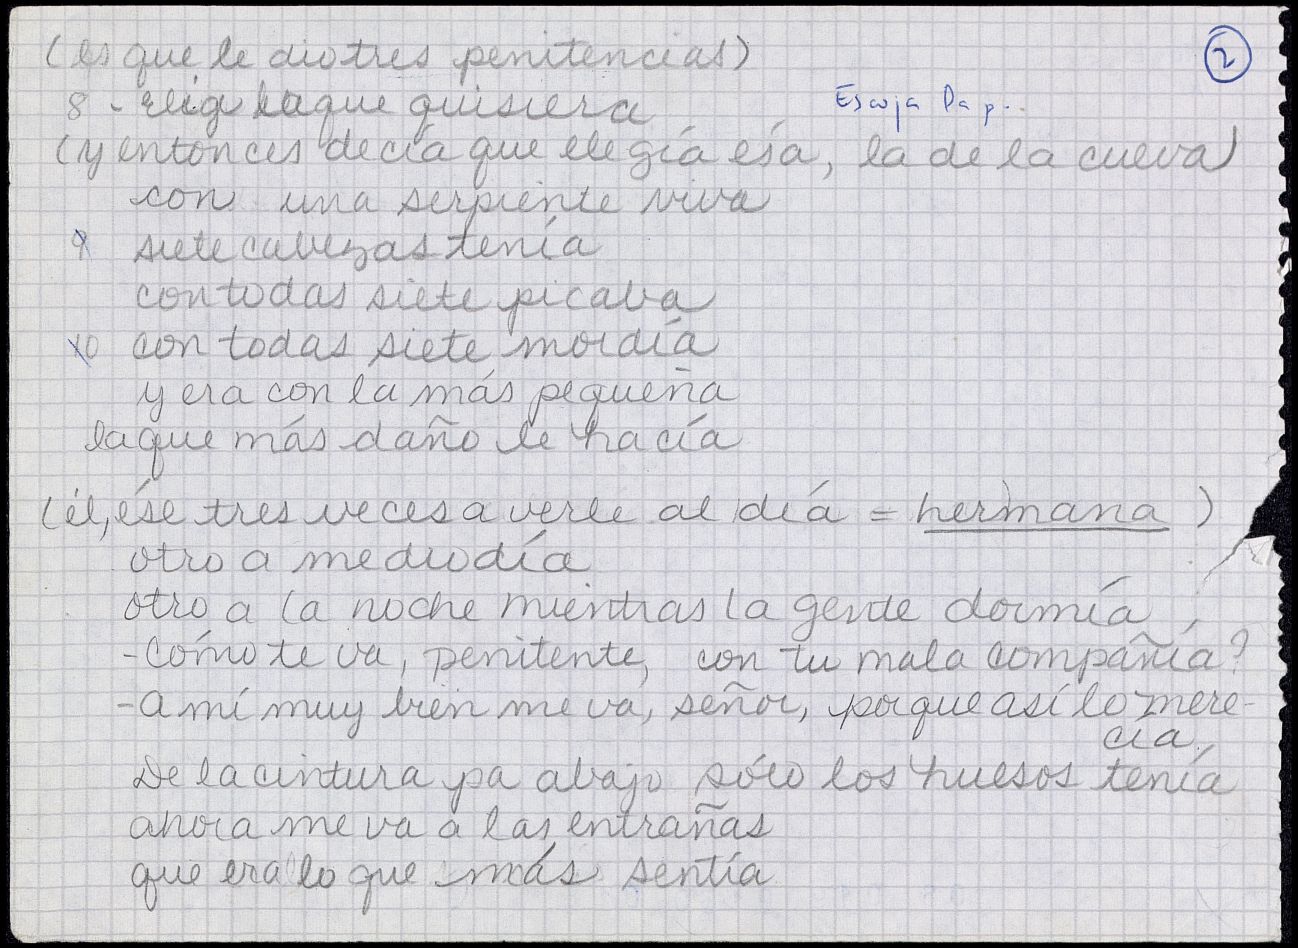 (es que le dio tres penitencias)
2
8 - elig la que quisiera
Escoja Da p...
(y entonces decía que elegía ésa, la de la cueva)
con una serpiente viva
9 siete cabezas tenía
con todas siete picaba
10 con todas siete mordía
y era con la más pequeña
la que más daño le hacía
(él, ése tres veces a verle al día = hermana)
otro a mediodía
otro a la noche mientras la gente dormía,
-Cómo te va, penitente, con tu mala compañía?
-A mí muy bien me va, señor, porque así lo mere-
cía,
De la cintura pa abajo sólo los huesos tenía
ahora me va a las entrañas
que era lo que más sentía